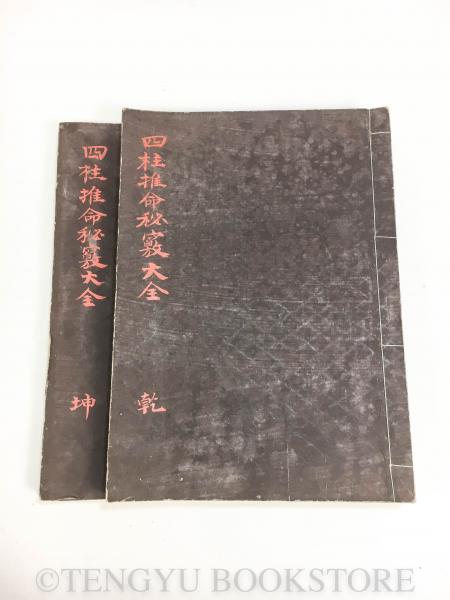 四柱推命秘竅大全
乾
四柱推命秘竅大全
坤
©TENGYU BOOKSTORE